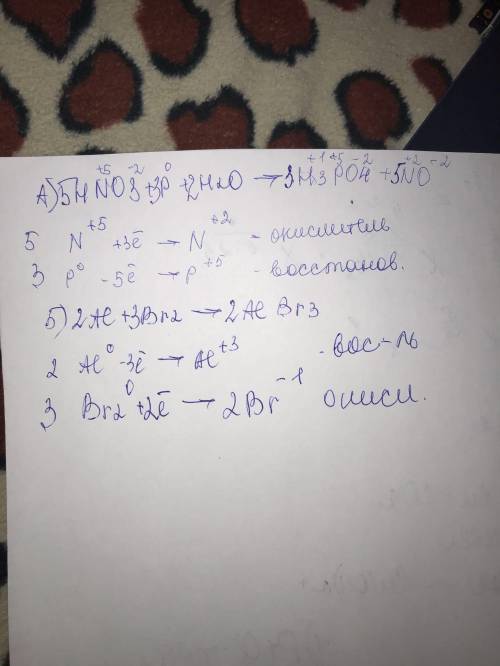 А) 5HNO3 + 3P + 2H2O → 3H3PO4 + 5NO
+5 -2 0 +1 +5 -2 +2 -2
5 N+5 +3ē → N+2 - окислитель
3 P0 -5ē → P+5 - восстанов.
Б) 2Al + 3Br2 → 2AlBr3
2 Al0 -3ē → Al+3 - вос-ль
3 Br20 +2ē → 2Br-1 окисл.